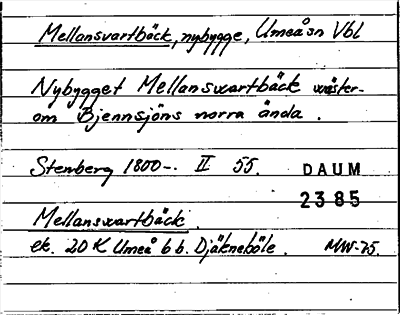 Mellansvartbäck, nybygge, Umeåsn Vbl
Nybygget Mellansvartbäck väster-
om Bjennsjöns norra ända.
Stenberg 1800-. II 55. DAUM
2385
Mellansvartbäck.
ek. 20 K Umeå 6 b. Djäkneböle. MW-75.